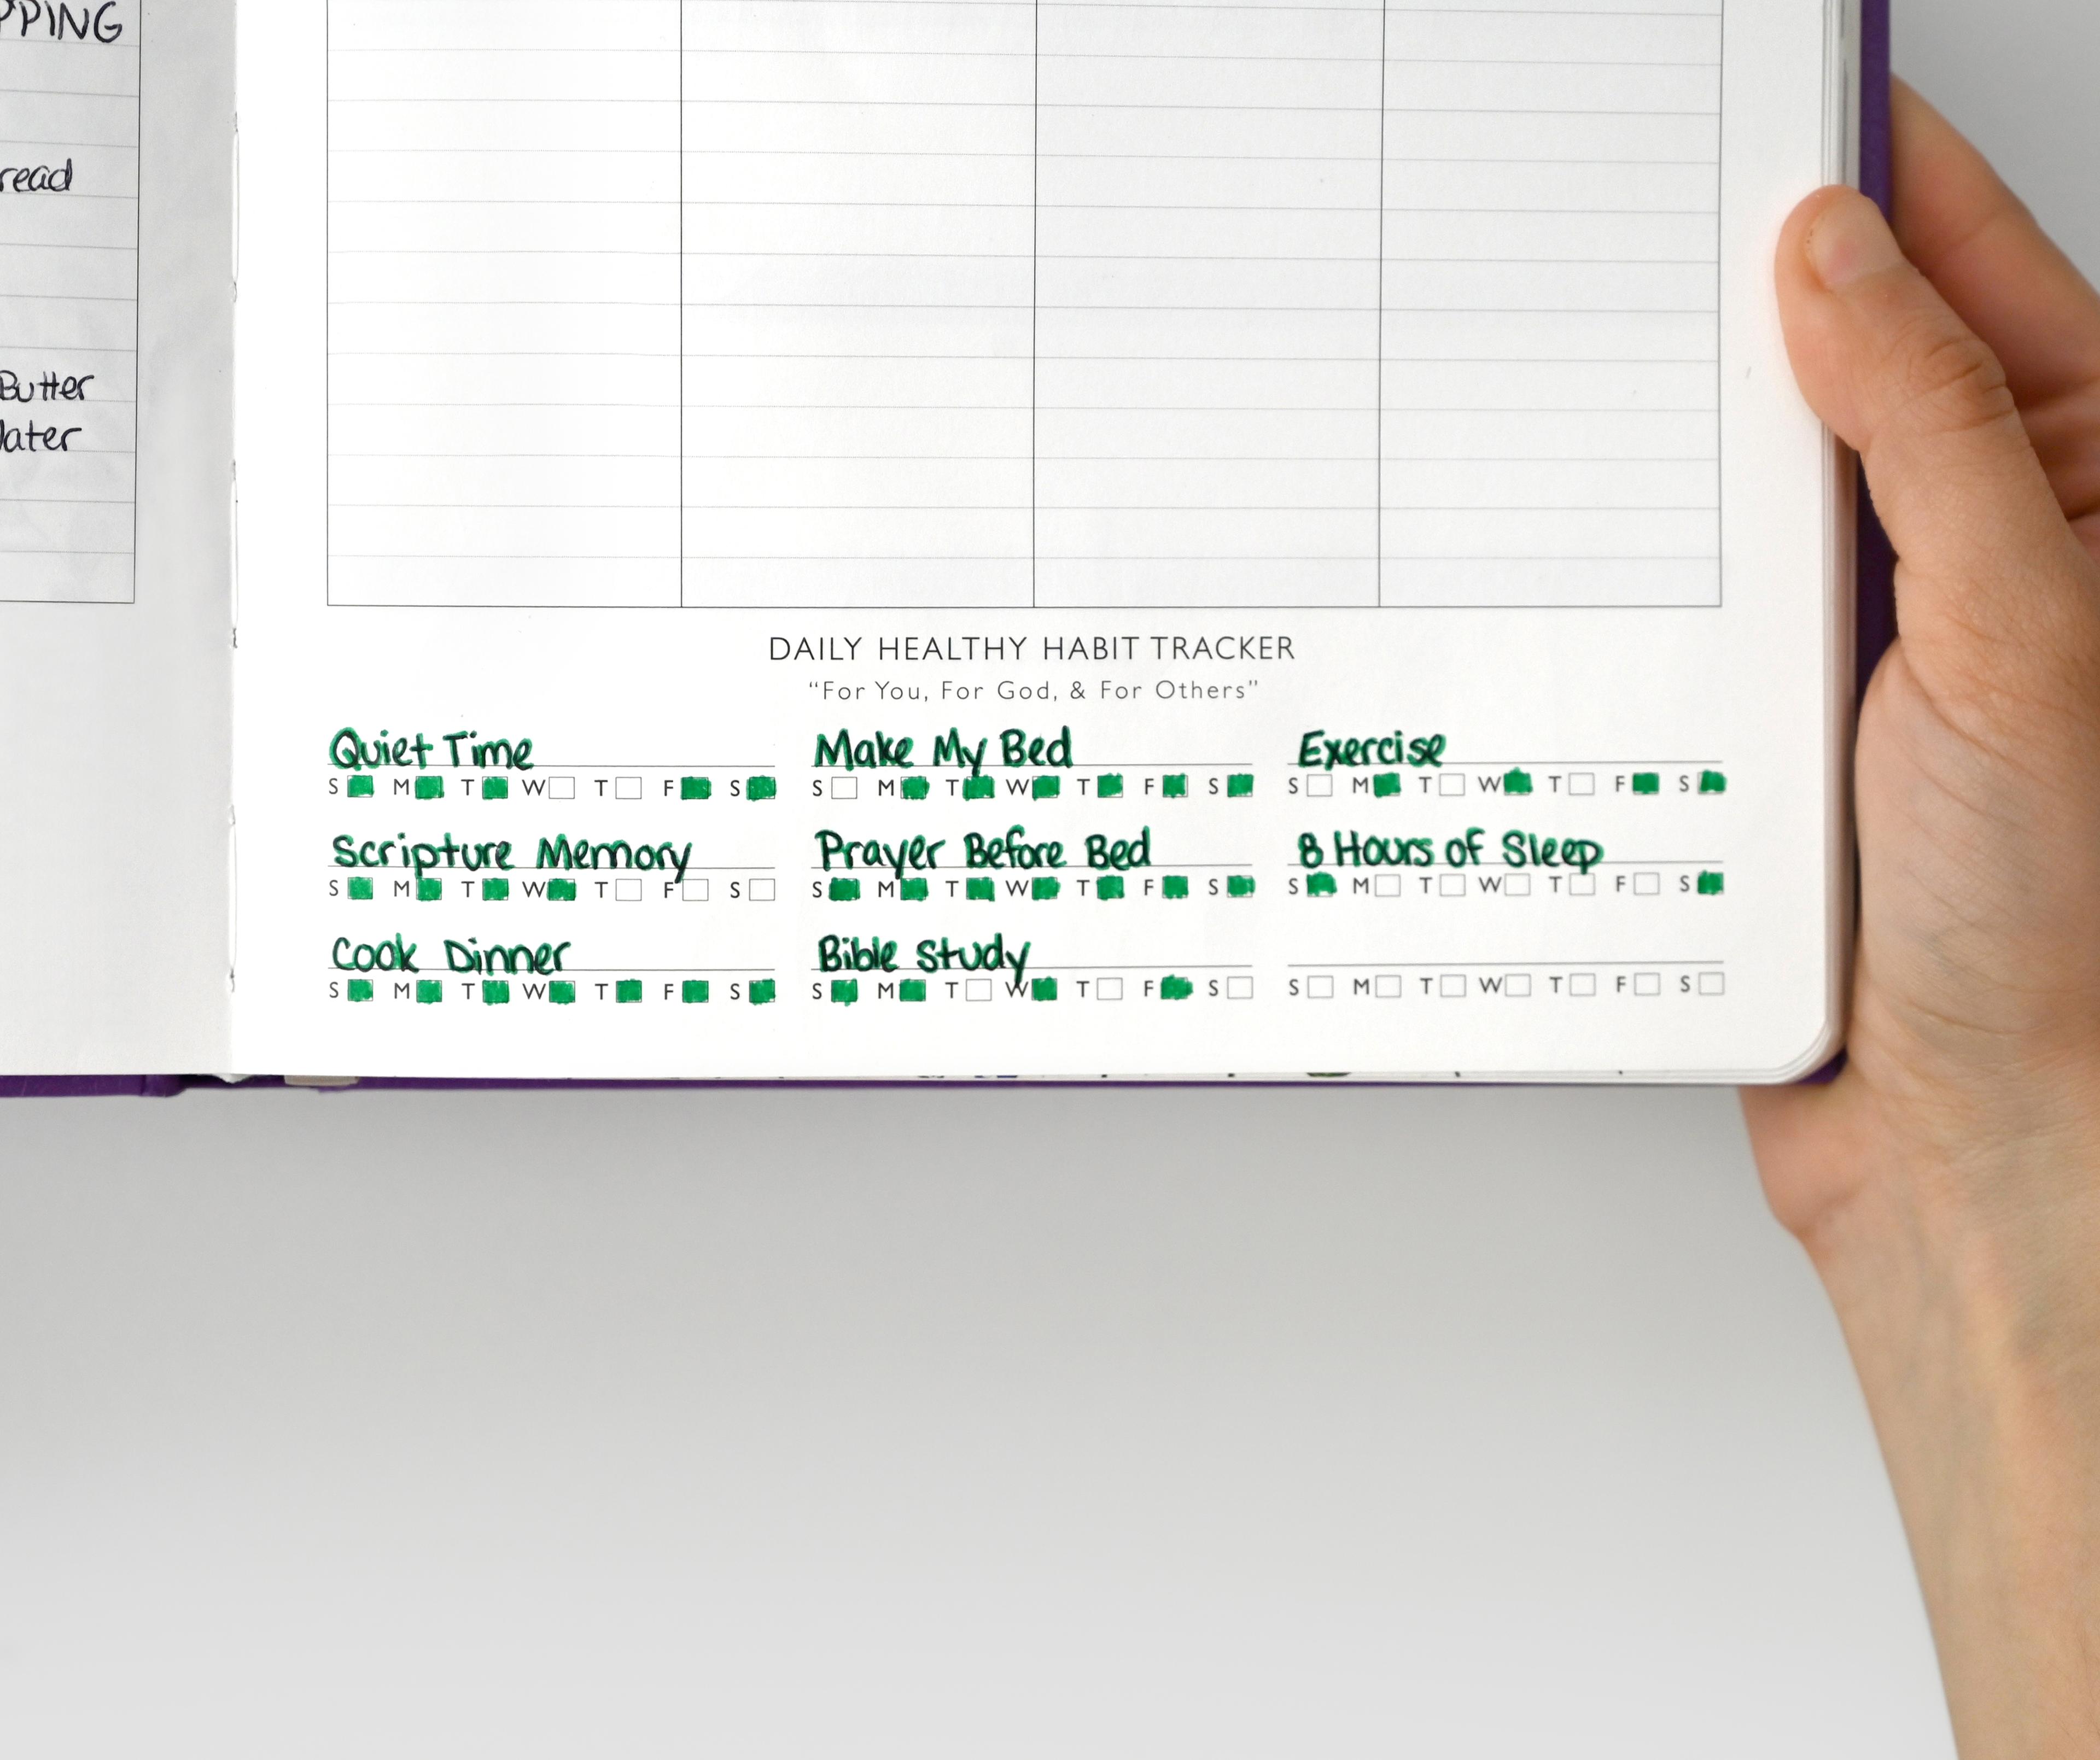 DAILY HEALTHY HABIT TRACKER
"For You, For God, & For Others"
Quiet Time
S M T W T F S
Make My Bed
S M T W T F S
Exercise
S M T W T F S
Scripture Memory
S M T W T F S
Prayer Before Bed
S M T W T F S
8 Hours of Sleep
S M T W T F S
Cook Dinner
S M T W T F S
Bible Study
S M T W T F S
S M T W T F S
Butter